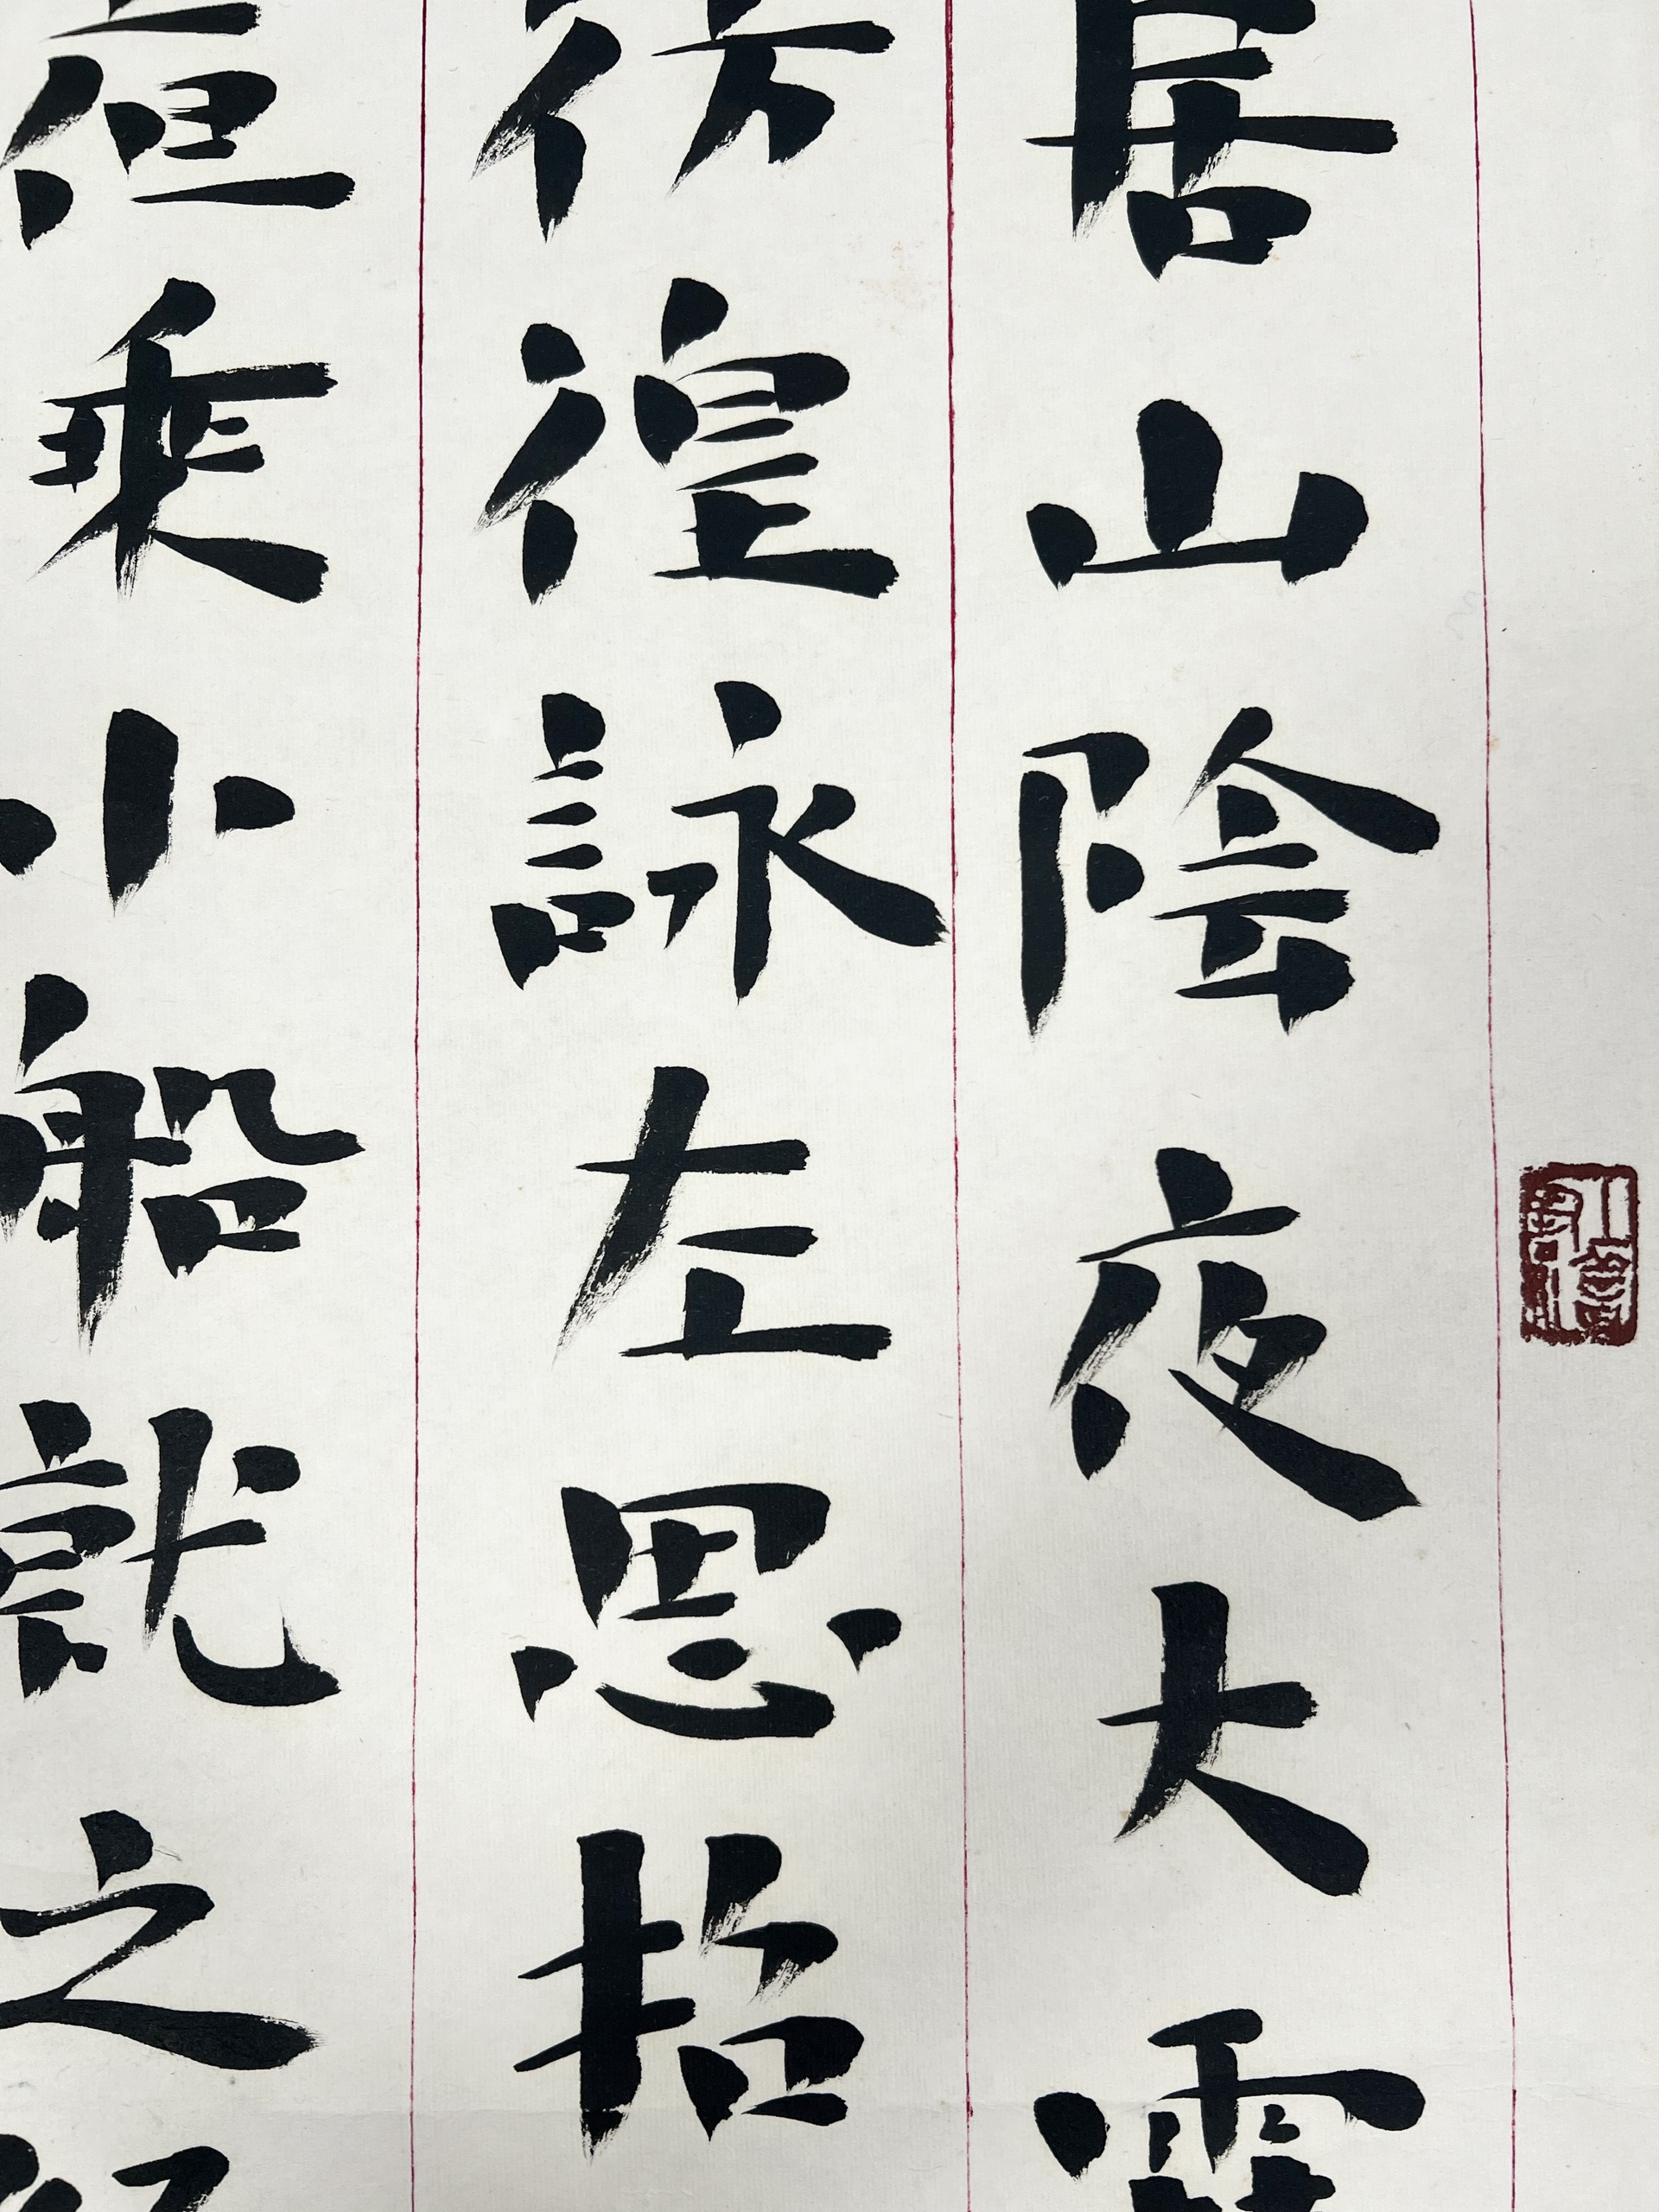 居山陰夜大雪
彷徨詠左思招
夜乘小船就之